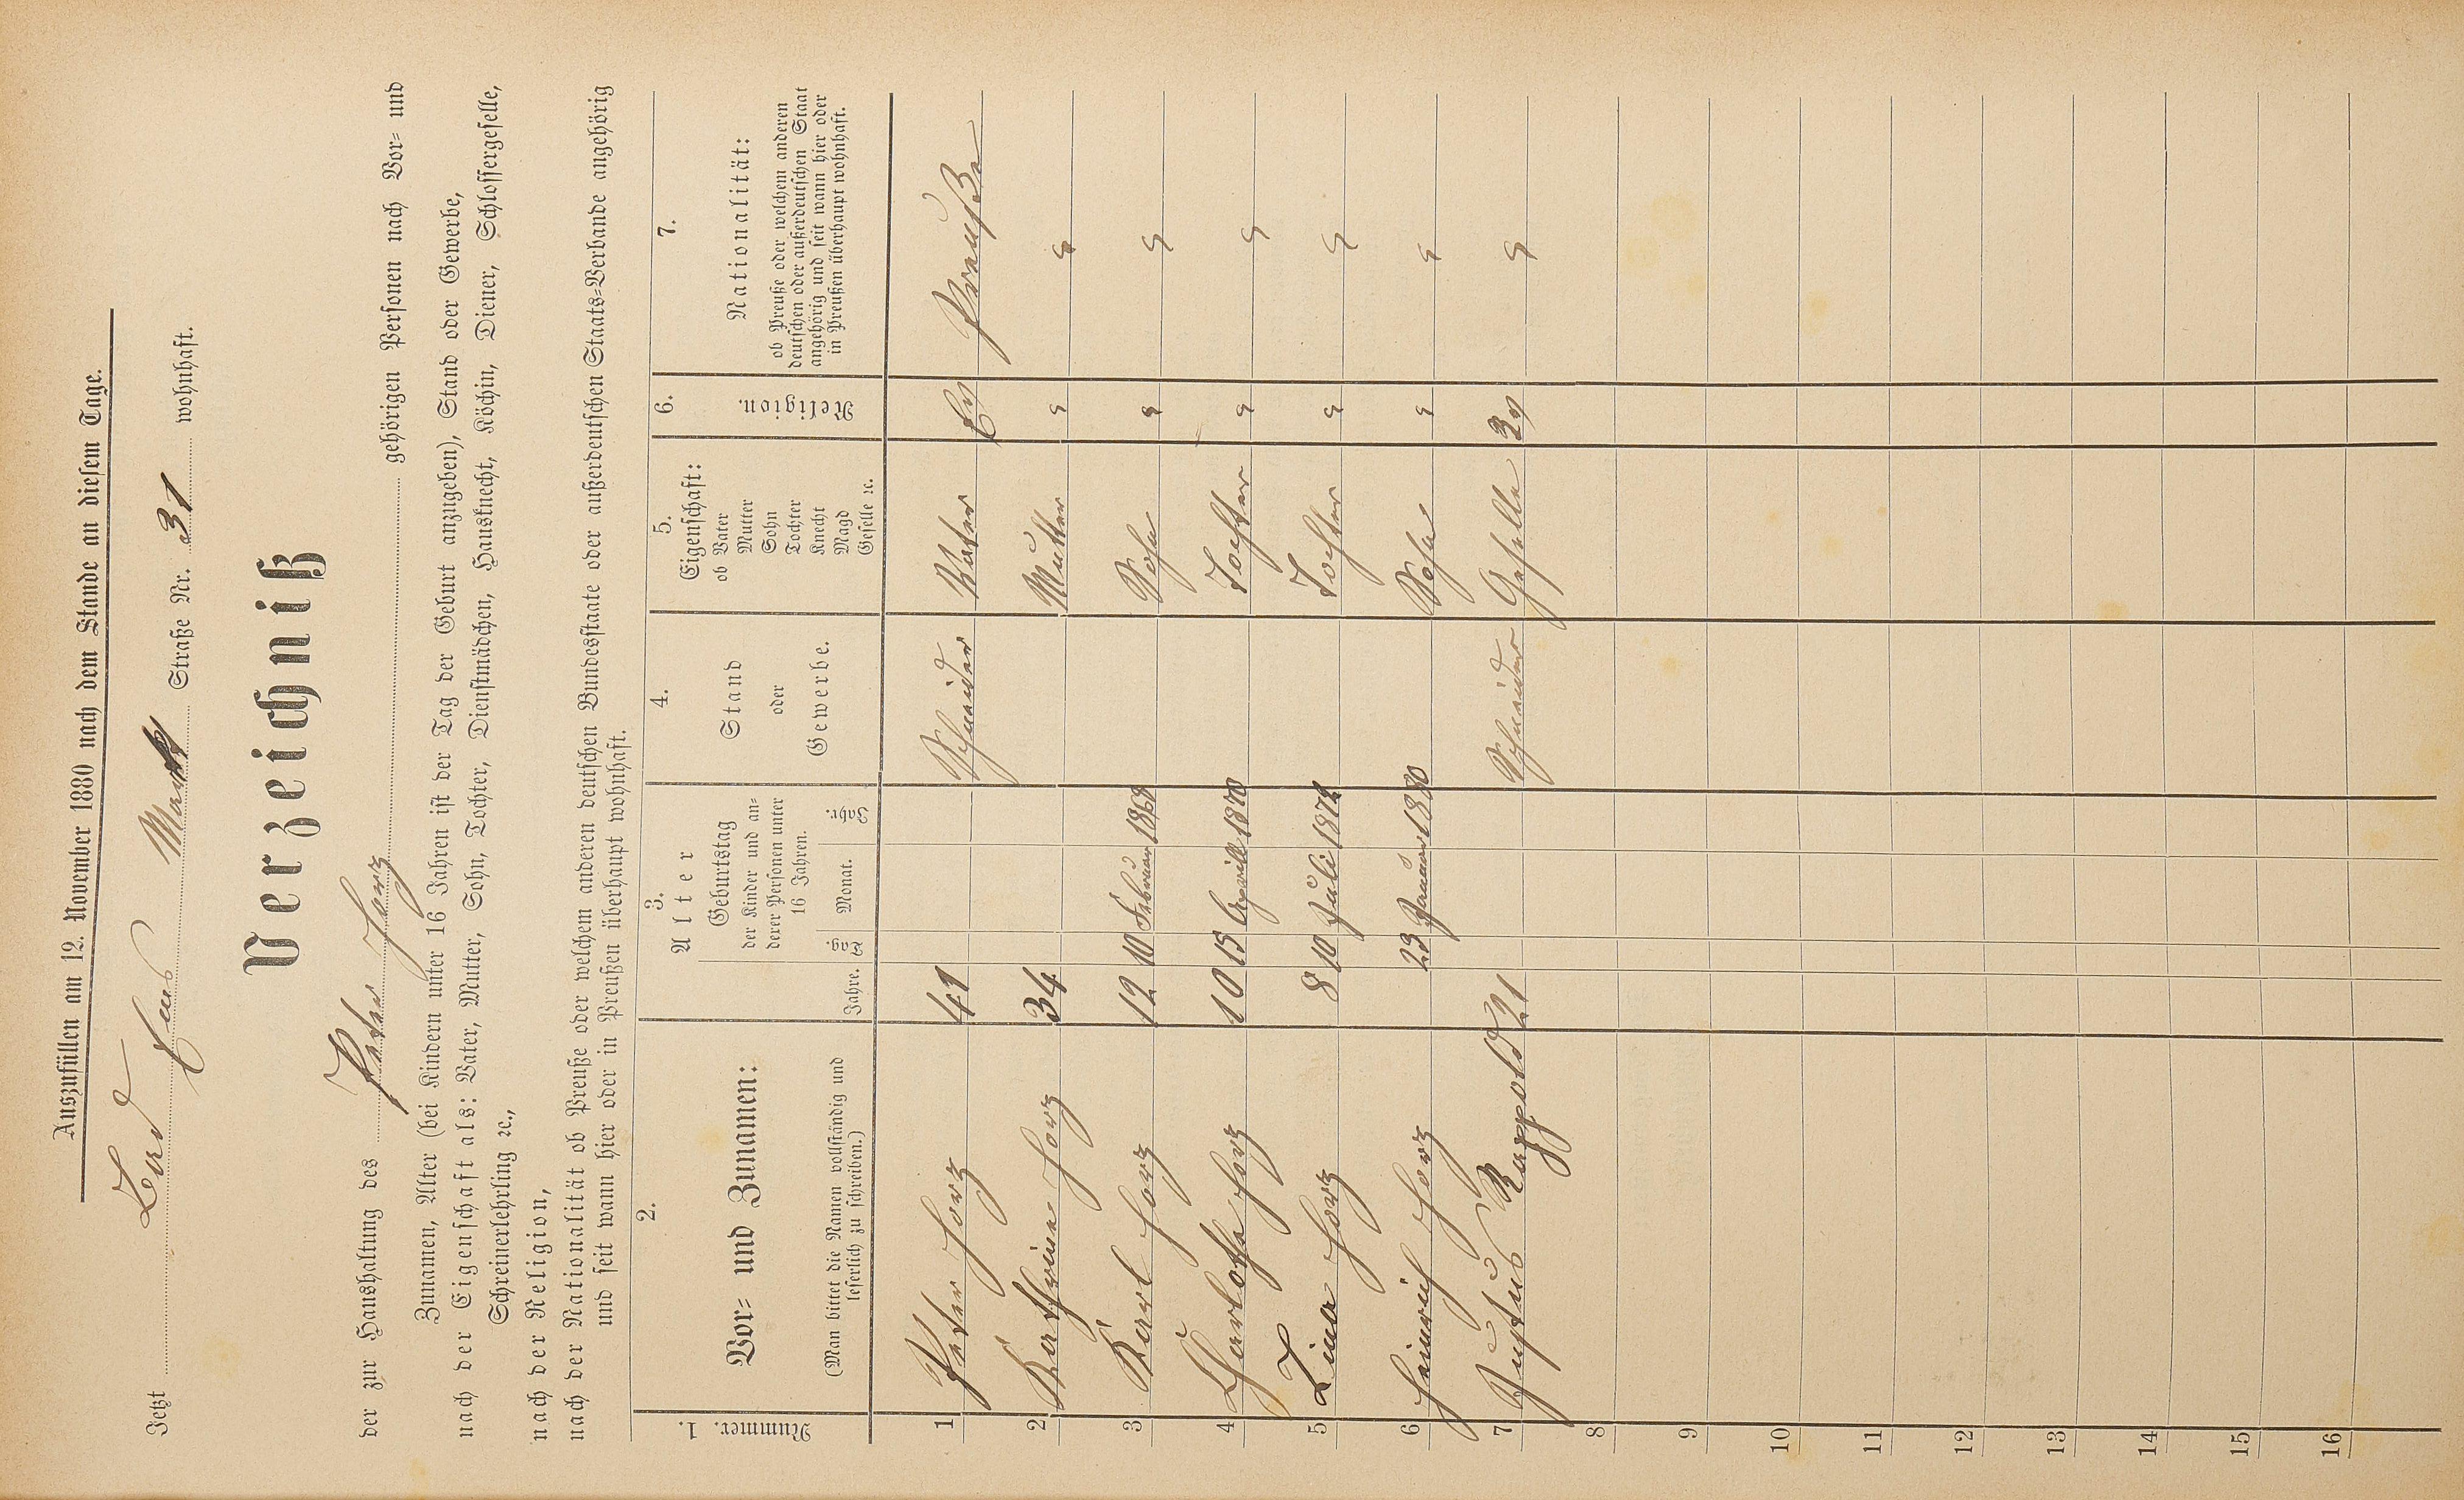 Auszufüllen am 12. November 1880 nach dem Stande an diesem Tage.
Jetzt Bad Ems Markt Straße Nr. 31 wohnhaft.
Verzeichniß
der zur Haushaltung des Peter Horz gehörigen Personen nach Vor- und
Zunamen, Alter (bei Kindern unter 16 Jahren ist der Tag der Geburt anzugeben), Stand oder Gewerbe,
nach der Eigenschaft als: Vater, Mutter, Sohn, Tochter, Dienstmädchen, Hausknecht, Köchin, Diener, Schlossergeselle,
Schreinerlehrling ꝛc.,
nach der Religion,
nach der Nationalität ob Preuße oder welchem anderen deutschen Bundesstaate oder außerdeutschen Staats-Verbande angehörig
und seit wann hier oder in Preußen überhaupt wohnhaft.
1. Nummer.
2. Vor- und Zunamen:
(Man bittet die Namen vollständig und
leserlich zu schreiben.)
3. Alter
Geburtstag
der Kinder und an-
derer Personen unter
16 Jahren.
Jahre. Tag. Monat. Jahr.
4. Stand
oder
Gewerbe.
5. Eigenschaft:
ob Vater
Mutter
Sohn
Tochter
Knecht
Magd
Geselle ꝛc.
6. Religion.
7. Nationalität:
ob Preuße oder welchem anderen
deutschen oder außerdeutschen Staat
angehörig und seit wann hier oder
in Preußen überhaupt wohnhaft.
1 Peter Horz 41 Schneider Vater Ev Preuße
2 Kathrina Horz 34 Mutter " "
3 Karl Horz 12 10 Februar 1868 Sohn " "
4 Charlotte Horz 10 15 Aprill 1870 Tochter " "
5 Lina Horz 8 10 Juli 1872 Tochter " "
6 Heinrich Horz 23 Januar 1880 Sohn " "
7 Justus Rappold 21 Schneider Geselle "
8
9
10
11
12
13
14
15
16